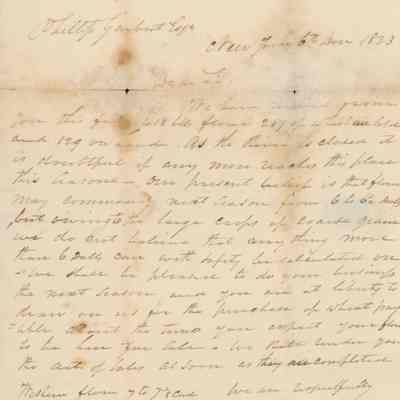 Phillip Esqr
New York 6th 1823
Dear Sir
We have from
you this flour 207 of which are sold
and 129 on hand. As the River is closed it
is doubtful if any more reaches this place
this season. Our present belief is that flour
may command next season from 6 to 6½ dolls
but owing to the large crops of coarse grain
we do not believe that anything more
than 6 dolls can with safety be calculated on
we shall be pleased to do your business
the next season and you are at liberty to
draw on us for the purchase of wheat pay-
able about the time you expect your flour
to be here for sale. We shall render you
the act of sales as soon as they are completed
Western flour 7 to 7¼ We are respectfully